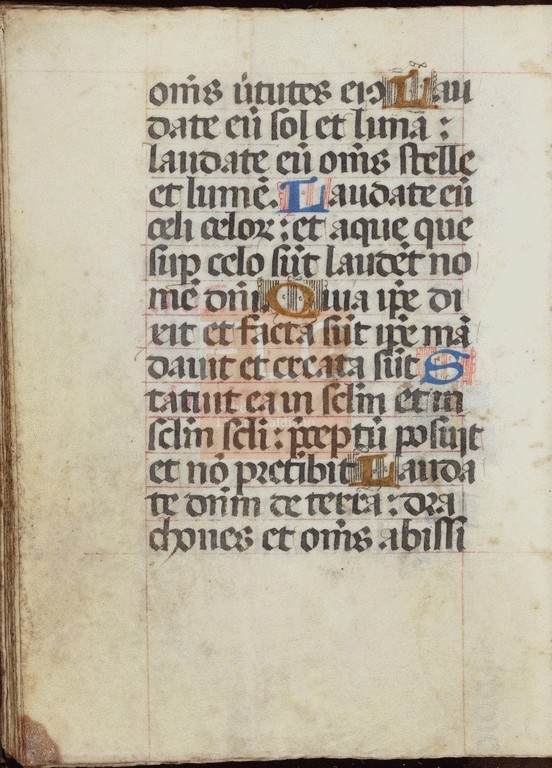 om̄s ūtutes eiꝰ Lau
date eū sol et luna :
laudate eū om̄s stelle
et lumē. Laudate eū
celi celoꝝ : et aque que
sup̄ celo sūt laudēt no
mē dn̄i Quia ip̄e di
xit et facta sūt ip̄e mā
davit et creata sūt S
tatuit ea in sc̄lm et in
sc̄lm scl̄i : p̄ceptū posuit
et nō pret̄ibit Lauda
te dn̄m de terra : dra
chones et om̄s abissi